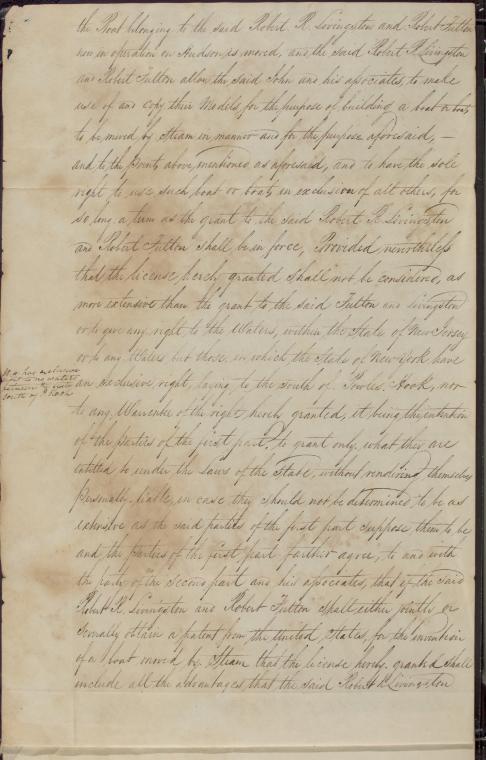 the Boat belonging to the said Robert R. Livingston and Robert Fulton
now in operation on Hudson, is moved, and the said Robert R Livingston
and Robert Fulton allow the said John and his associates, to make
use of and copy their Models for the purpose of building a boat or boats
to be moved by Steam in manner and for the purpose aforesaid, —
and to the Points above mentioned as aforesaid, and to have the sole
right to use such boat or boats in exclusion of all others, for
so long a term as the grant to the said Robert R. Livingston
and Robert Fulton shall be in force, Provided nevertheless
that the license hereby granted shall not be considered, as
more extensive than the grant to the said Fulton and Livingston
or to give any right to the Waters, within the State of New Jersey
or to any Waters but those, in which the State of New York have
an exclusive right, laying to the South of Powles Hook, nor
to any Warrantee of the right hereby granted, it being the intention
of the parties of the first part, to grant only, what they are
entitled to under the Laws of the State, without rendering themselves
personally liable, in case they should not be determined to be as
extensive as the said parties of the first part suppose them to be
and the parties of the first part further agree, to and with
the party of the second part and his associates, that if the said
Robert R. Livingston and Robert Fulton shall either jointly or
severally obtain a patent from the United States, for the invention
of a boat moved by Steam that the license hereby granted shall
include all the advantages that the said Robert R Livingston
south of P. Hook